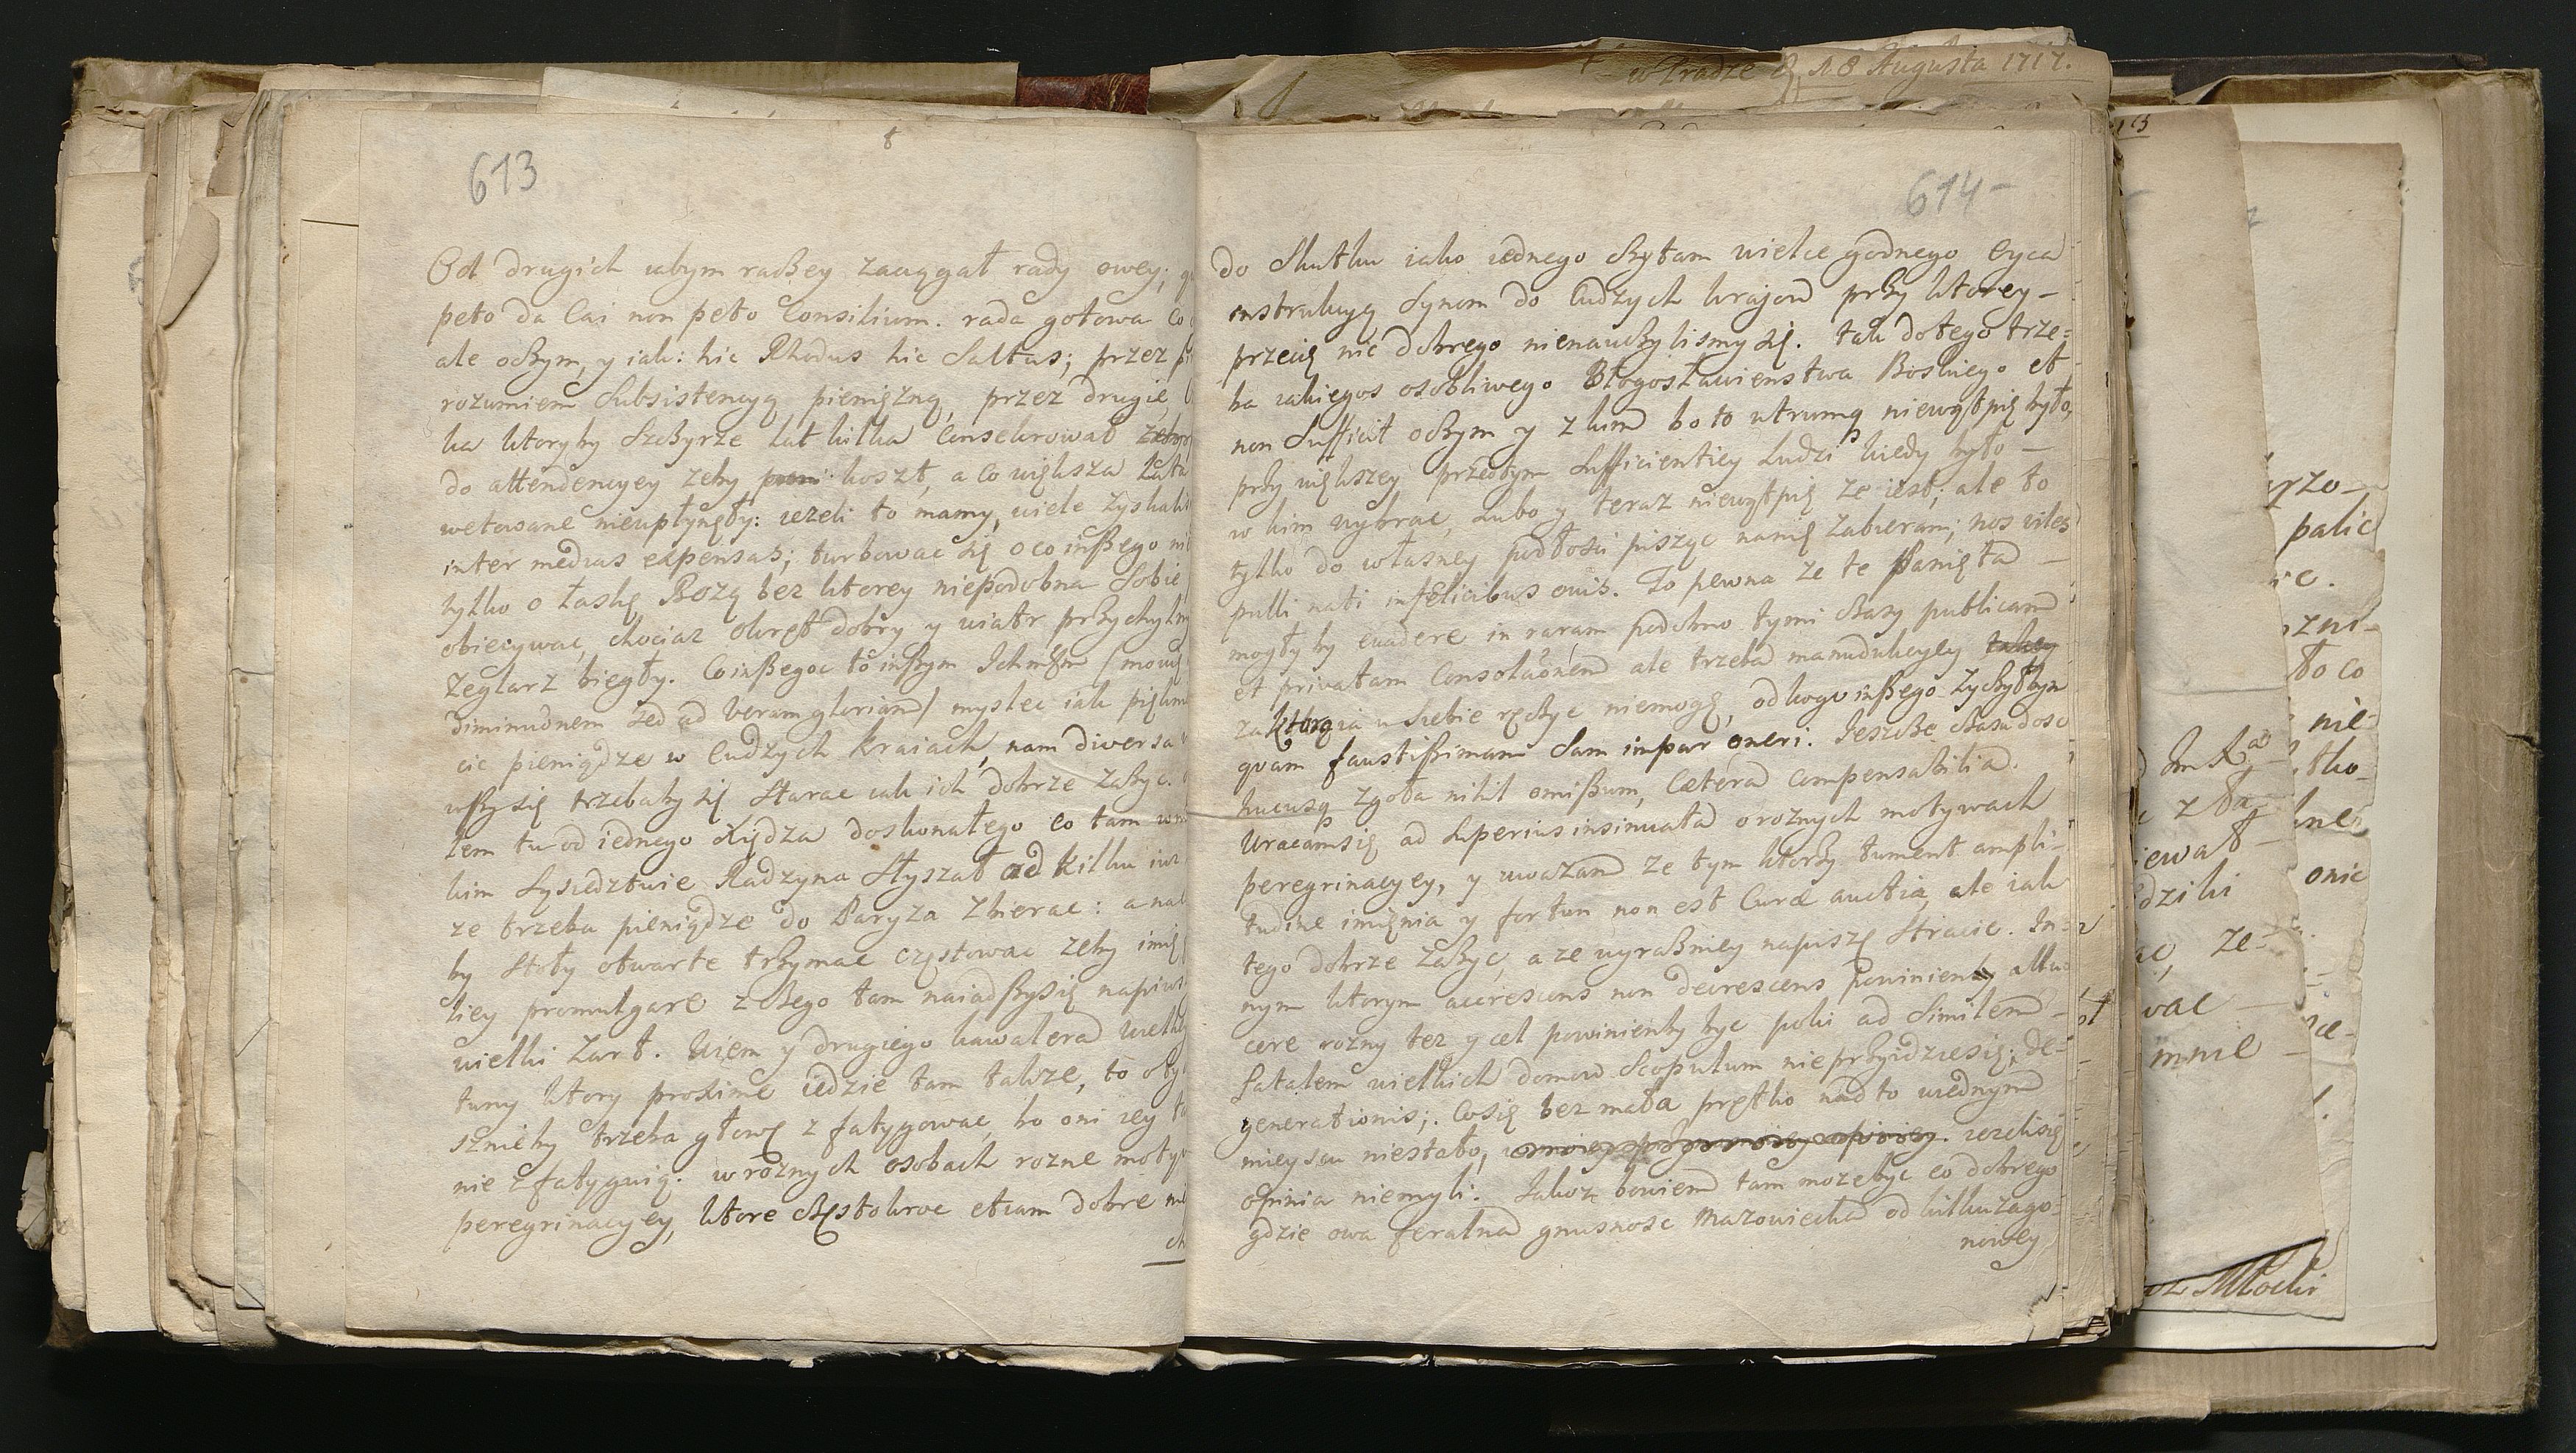 w Pradze d. 18 Augusta 1717.
8
613
Od drugich iabym raßey zaciągał rady owey;
peto da Cai non peto Consilium. rada gotowa co
ale oczym, y iak: hic Rhodus hic Saltus; przez
rozumiem Subsistencyą pieniężną, przez drugie,
ka ktoryby Szczyrze lat kilka Conserwował
do attendencyey zeby koszt, a co większa lata
wetowane nieupłynęły: iezeli to mamy, wiele zyskali
inter medias expensas; turbowac się o co inßego
tylko o łaskę Bożą bez ktorey niepodobna Sobie
obiecywac, chociaz okręt dobry y wiatr przychylny
Zeglarz biegły. Co inßego to inßym Ichmm (mowię
sed ad veram gloriam) myslec iak piękn
cic pieniądze w Cudzych Kraiach, nam diversa
wßysię trzebaby się starac iak ich dobrze zażyc.
łem tu od iednego Xiędza doskonałego co tam
kim Sąsiedztwie Radzyna Słyszał od kilku iuz
ze trzeba pieniądze do Paryza zbierac: a na
by stoły otwarte trzymac częstowac zeby imię
liey promulgare z czego tam naiadßysię napi
wielki Zart. Wiem y drugiego kawalera
tury ktory proxime iedzie tam takze, to
sznieby trzeba głowę zfatygowac, bo oni iey
nie zfatyguią. w roznych osobach rozne moty
peregrinacyey, ktore częstokroc etiam dobre
614-
do Skutku iako iednego czytam wielce godnego Oyca
instrukcyą Synom do Cudzych kraiow przy ktorey-
przecię nic dobrego nienauczylismy się. tak do tego trze=
ba iakiegos osobliwego Błogosławienstwa Boskiego et
non Sufficit oczym y z kim bo to utrumq niewątpię było,
przy większey przedtym Sufficientiey Ludzi kiedy było -
w kim wybrac, Lubo y teraz niewątpię ze iest; ale to
tylko do własney podłości piszęc namię zabieram; nos viles
pulli nati infelicibus ovis. To pewna ze te Panięta -
mogłyby evadere in raram podobno tymi czasy publicam
et privatam Consolaõnem ale trzeba manudukcyey takey
za ktorą ia u siebie ręczyc niemogę, od kogo inßego zyczyłbym
quam faustissimam Sam impar oneri. Jeszcze czasu dosc
hucusq zgoła nihil omissum, Cætera Compensabilia.
Wracamsię ad superius insinuata o roznych motywach
peregrinacyey, y uwazam ze tym ktorzy tument ampli=
tudine imięnia y fortun non est Curæ auctia, ale iak
tego dobrze zażyc, a ze wyrażniey napiszę stracic. In=
nym ktorym accrescens non decrescens powinienby
cere rozny tez y cel powinienby byc poki ad Similem -
fatalem wielkich domow Scopulum nieprzyidziesię; de=
generationis;. Cosię bez mała prętko nad to w iednym
mieyscu niestało, iezelisię
opinia niemyli. Jakoz bowiem tam mozebyc co dobrego
gdzie owa feralna gnusnosc Mazowiecka od kilkuzago=
nowey
palic
to co
nie
ze
mnie
onie
Młocki